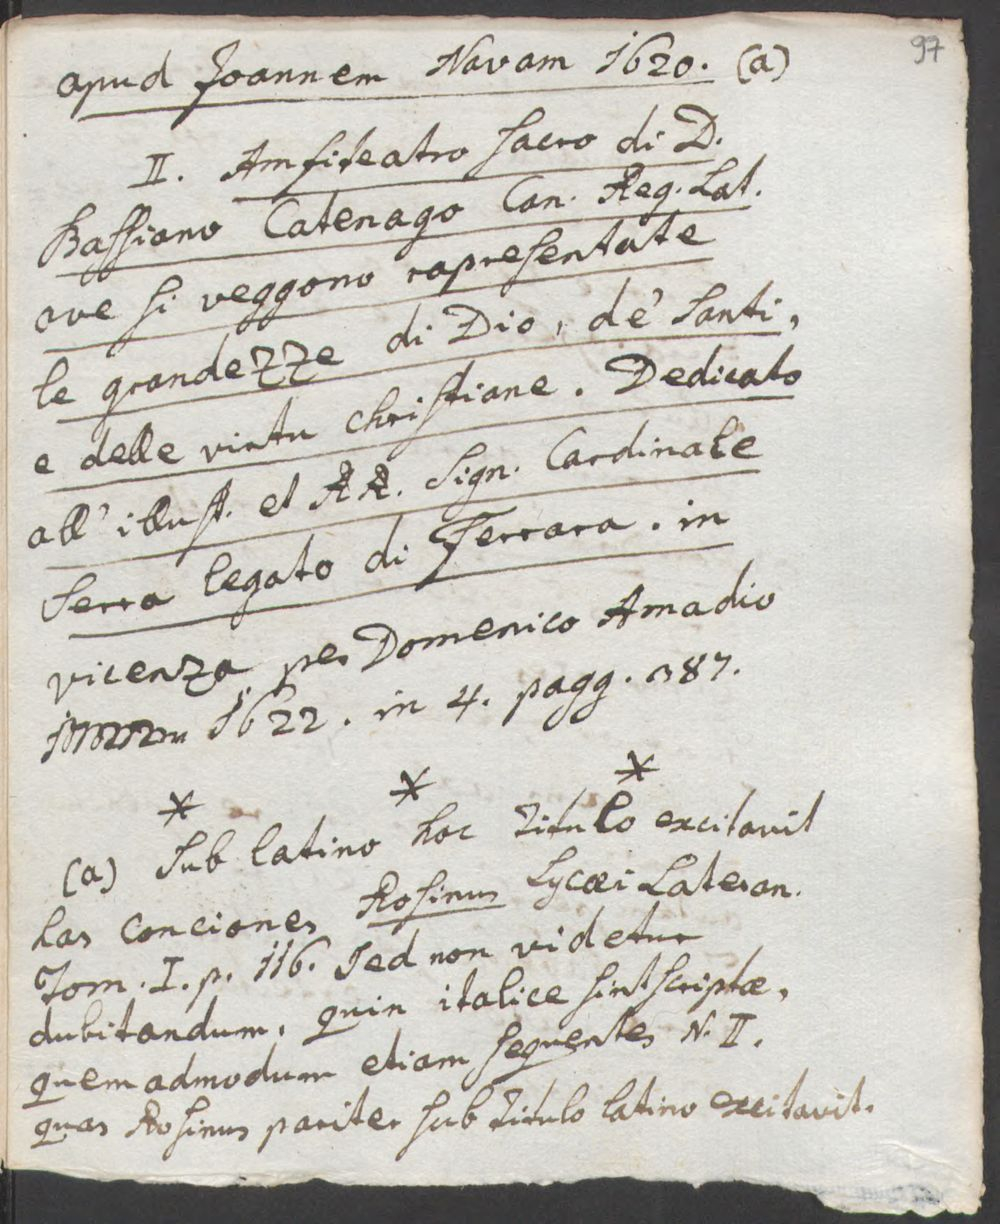 97
apud Joannem Navam 1620. (a)
II. Amfiteatro sacro di D.
Bassiano Catenago Can. Reg. Lat.
ove si veggono rapresentate
le grandezze di Dio, de' Santi,
e delle virtu christiane. Dedicato
all' illust. et RR. Sign. Cardinale
Serra legato di Ferrara. in
vicenza per Domenico Amadio
1622. in 4. pagg. 387.
* * *
(a) Sub latino hoc titulo excitavit
has conciones Rosinus Lycæi Lateran.
Tom. I. p. 116. Sed non videtur
dubitandum, quin italice sint scriptæ,
quemadmodum etiam sequentes N. II.
quas Rosinus pariter sub titulo latino excitavit.